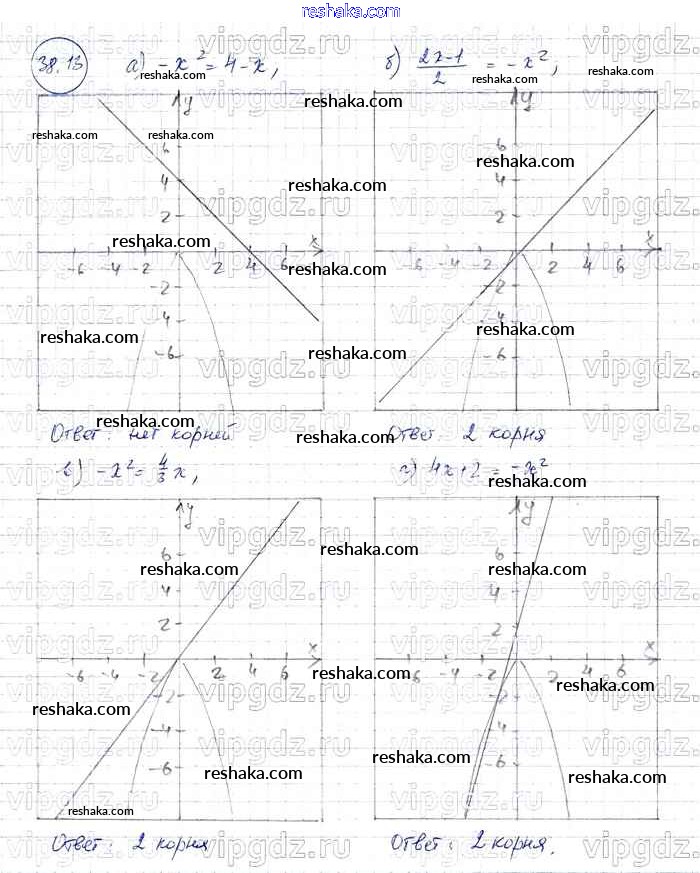 reshaka.com
38.13 а) -x² = 4-x, б) (2x-1)/2 = -x²,
y y
6 6
4 4
2 2
x x
-6 -4 -2 2 4 6 -6 -4 -2 2 4 6
-2 -2
-4 -4
-6 -6
Ответ: нет корней Ответ: 2 корня
в) -x² = 4/3 x, г) 4x+2 = -x²
y y
6 6
4 4
2 2
x x
-6 -4 -2 2 4 6 -6 -4 -2 2 4 6
-2 -2
-4 -4
-6 -6
Ответ: 2 корня Ответ: 2 корня.
reshaka.com
vipgdz.ru